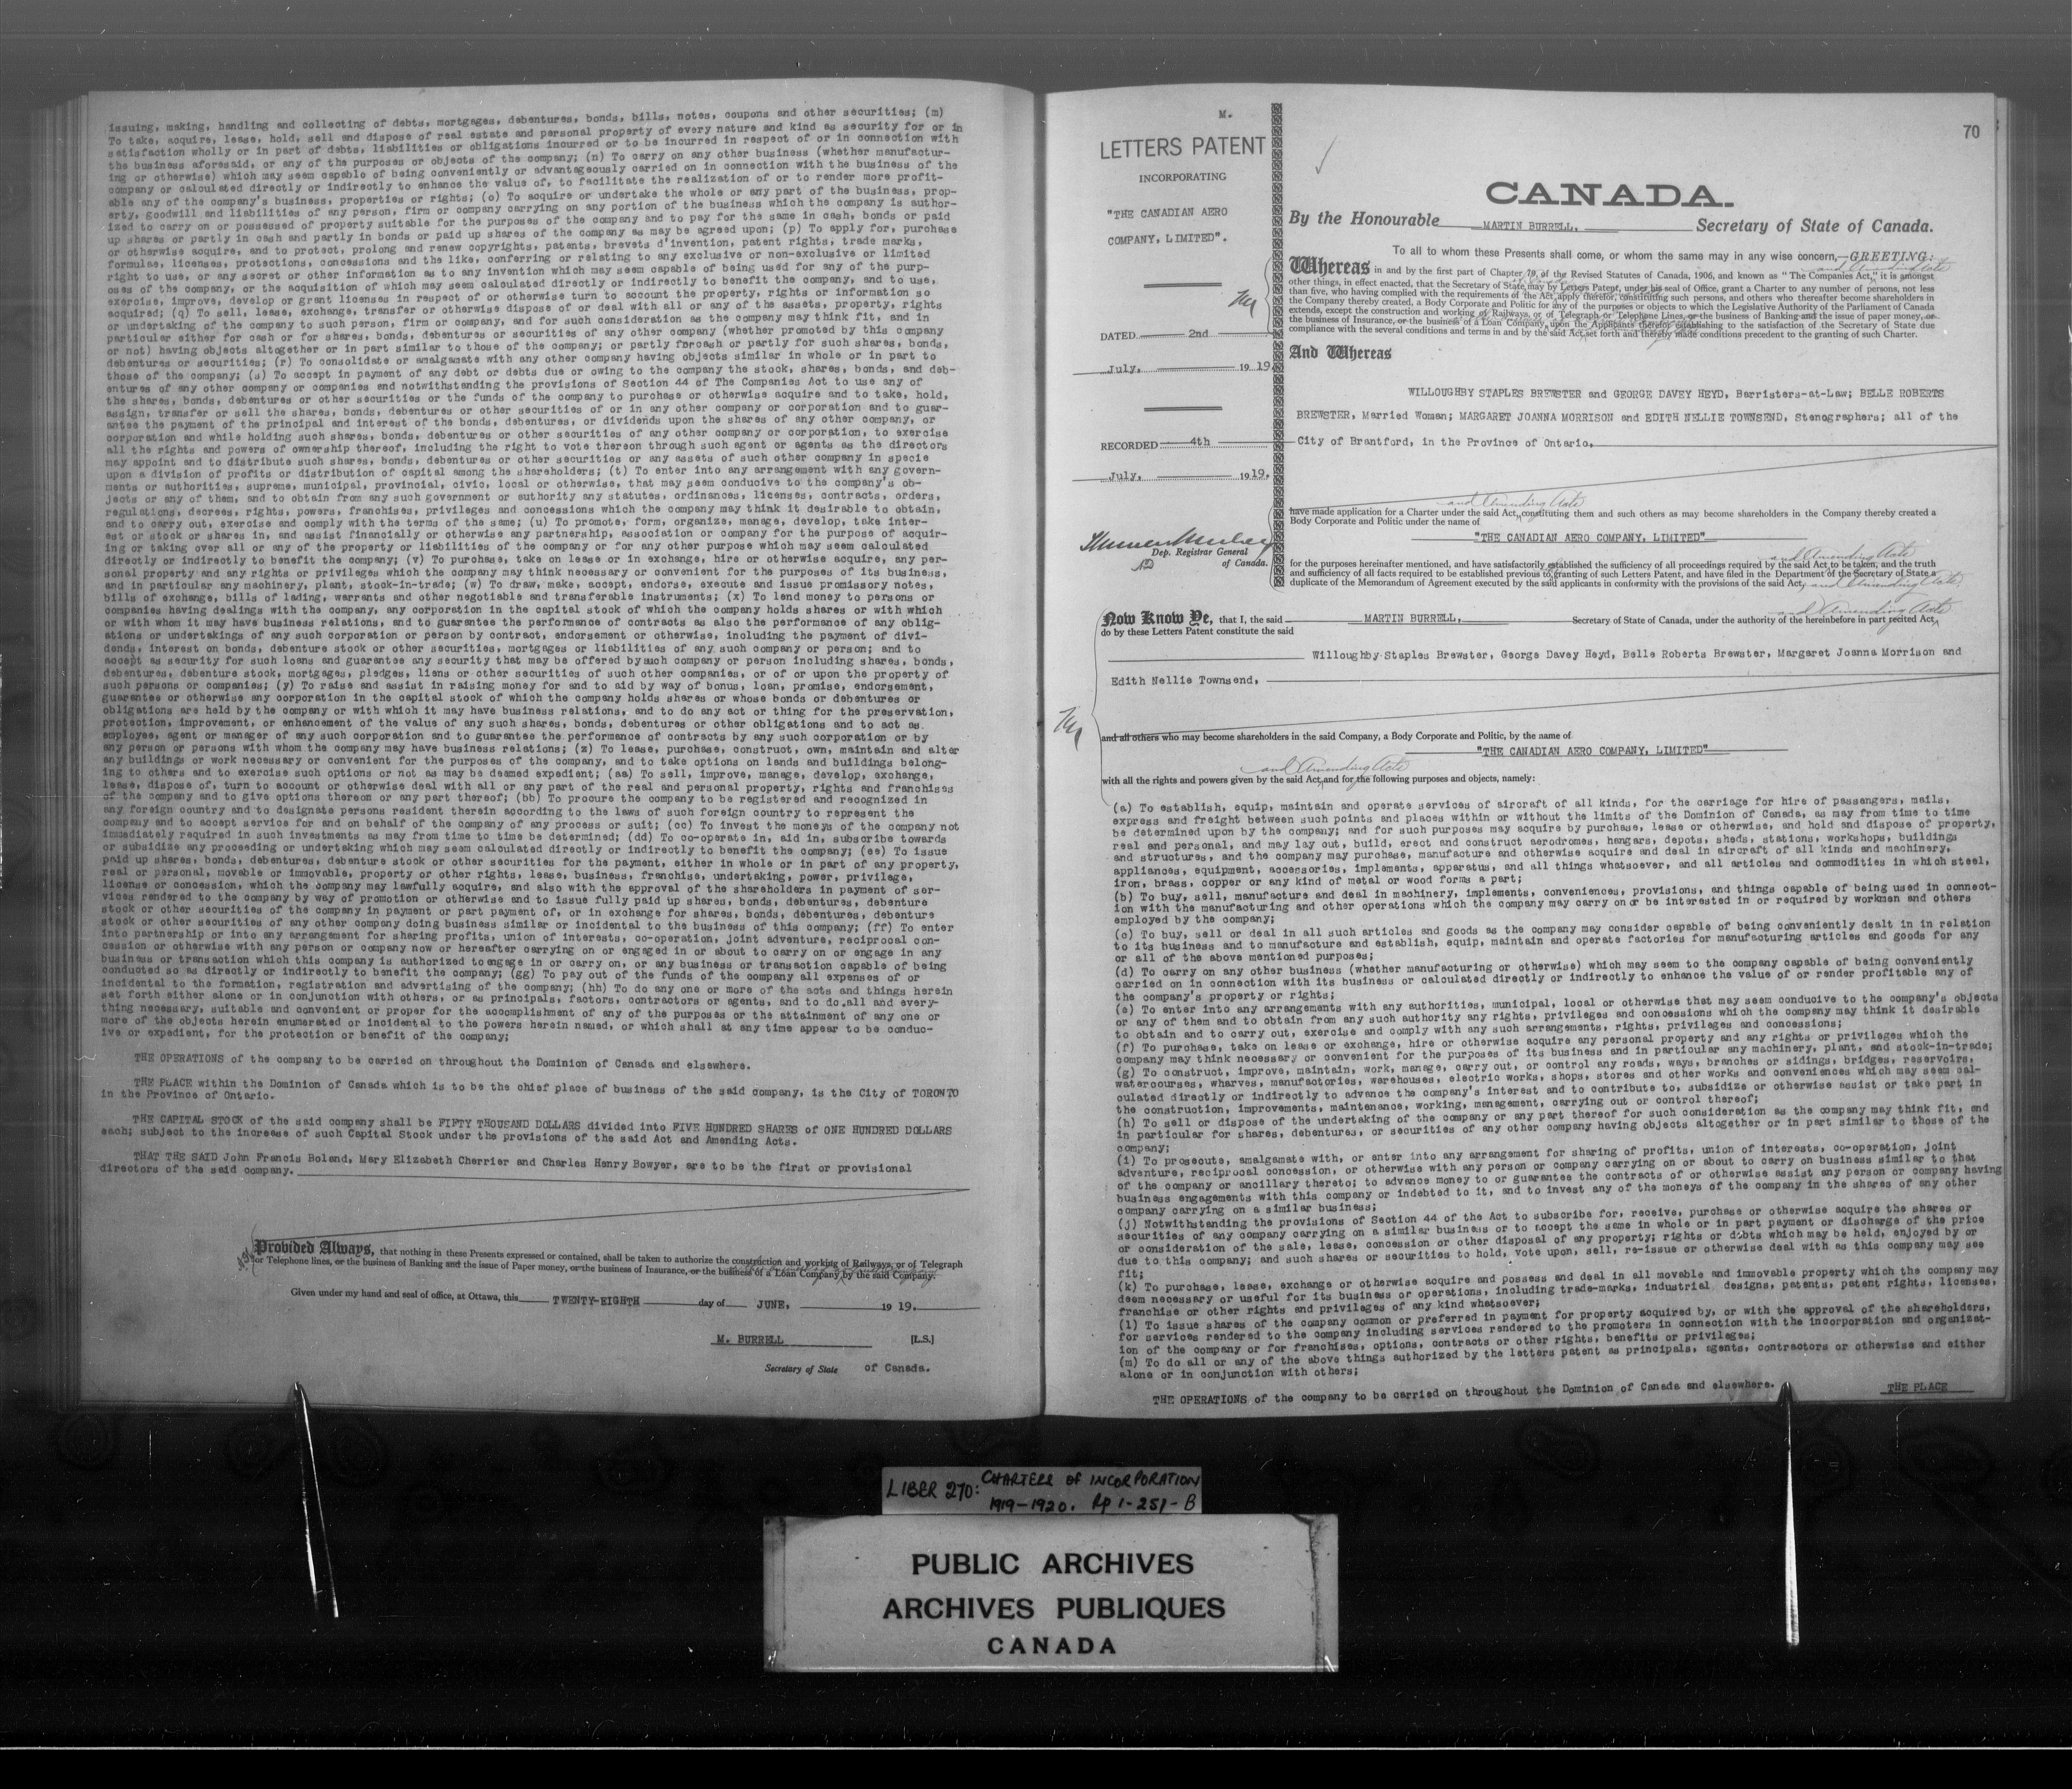 issuing, making, handling and collecting of debts, mortgages, debentures, bonds, bills, notes, coupons and other securities; (m)
To take, acquire, lease, hold, sell and dispose of real estate and personal property of every nature and kind as security for or in
satisfaction wholly or in part of debts, liabilities or obligations incurred or to be incurred in respect of or in connection with
the business aforesaid, or any of the purposes or objects of the company; (n) To carry on any other business (whether manufactur-
ing or otherwise) which may seem capable of being conveniently or advantageously carried on in connection with the business of the
company or calculated directly or indirectly to enhance the value of, to facilitate the realization of or to render more profit-
able any of the company's business, properties or rights; (o) To acquire or undertake the whole or any part of the business, prop-
erty, goodwill and liabilities of any person, firm or company carrying on any portion of the business which the company is author-
ized to carry on or possessed of property suitable for the purposes of the company and to pay for the same in cash, bonds or paid
up shares or partly in cash and partly in bonds or paid up shares of the company as may be agreed upon; (p) To apply for, purchase
or otherwise acquire, and to protect, prolong and renew copyrights, patents, brevets d'invention, patent rights, trade marks,
formulae, licenses, protections, concessions and the like, conferring or relating to any exclusive or non-exclusive or limited
right to use, or any secret or other information as to any invention which may seem capable of being used for any of the purp-
oses of the company, or the acquisition of which may seem calculated directly or indirectly to benefit the company, and to use,
exercise, improve, develop or grant licenses in respect of or otherwise turn to account the property, rights or information so
acquired; (q) To sell, lease, exchange, transfer or otherwise dispose of or deal with all or any of the assets, property, rights
or undertaking of the company to such person, firm or company, and for such consideration as the company may think fit, and in
particular either for cash or for shares, bonds, debentures or securities of any other company (whether promoted by this company
or not) having objects altogether or in part similar to those of the company; or partly forcash or partly for such shares, bonds,
debentures or securities; (r) To consolidate or amalgamate with any other company having objects similar in whole or in part to
those of the company; (s) To accept in payment of any debt or debts due or owing to the company the stock, shares, bonds, and deb-
entures of any other company or companies and notwithstanding the provisions of Section 44 of The Companies Act to use any of
the shares, bonds, debentures or other securities or the funds of the company to purchase or otherwise acquire and to take, hold,
assign, transfer or sell the shares, bonds, debentures or other securities of or in any other company or corporation and to guar-
antee the payment of the principal and interest of the bonds, debentures, or dividends upon the shares of any other company, or
corporation and while holding such shares, bonds, debentures or other securities of any other company or corporation, to exercise
all the rights and powers of ownership thereof, including the right to vote thereon through such agent or agents as the directors
may appoint and to distribute such shares, bonds, debentures or other securities or any assets of such other company in specie
upon a division of profits or distribution of capital among the shareholders; (t) To enter into any arrangement with any govern-
ments or authorities, supreme, municipal, provincial, civic, local or otherwise, that may seem conducive to the company's ob-
jects or any of them, and to obtain from any such government or authority any statutes, ordinances, licenses, contracts, orders,
regulations, decrees, rights, powers, franchises, privileges and concessions which the company may think it desirable to obtain,
and to carry out, exercise and comply with the terms of the same; (u) To promote, form, organize, manage, develop, take inter-
est or stock or shares in, and assist financially or otherwise any partnership, association or company for the purpose of acquir-
ing or taking over all or any of the property or liabilities of the company or for any other purpose which may seem calculated
directly or indirectly to benefit the company; (v) To purchase, take on lease or in exchange, hire or otherwise acquire, any per-
sonal property and any rights or privileges which the company may think necessary or convenient for the purposes of its business,
and in particular any machinery, plant, stock-in-trade; (w) To draw, make, accept, endorse, execute and issue promissory notes,
bills of exchange, bills of lading, warrants and other negotiable and transferable instruments; (x) To lend money to persons or
companies having dealings with the company, any corporation in the capital stock of which the company holds shares or with which
or with whom it may have business relations, and to guarantee the performance of contracts as also the performance of any oblig-
ations or undertakings of any such corporation or person by contract, endorsement or otherwise, including the payment of divi-
dends, interest on bonds, debenture stock or other securities, mortgages or liabilities of any such company or person; and to
accept as security for such loans and guarantee any security that may be offered bysuch company or person including shares, bonds,
debentures, debenture stock, mortgages, pledges, liens or other securities of such other companies, or of or upon the property of
such persons or companies; (y) To raise and assist in raising money for and to aid by way of bonus, loan, promise, endorsement,
guarantee or otherwise any corporation in the capital stock of which the company holds shares or whose bonds or debentures or
obligations are held by the company or with which it may have business relations, and to do any act or thing for the preservation,
protection, improvement, or enhancement of the value of any such shares, bonds, debentures or other obligations and to act as
employee, agent or manager of any such corporation and to guarantee the performance of contracts by any such corporation or by
any person or persons with whom the company may have business relations; (z) To lease, purchase, construct, own, maintain and alter
any buildings or work necessary or convenient for the purposes of the company, and to take options on lands and buildings belong-
ing to others and to exercise such options or not as may be deamed expedient; (aa) To sell, improve, manage, develop, exchange,
lease, dispose of, turn to account or otherwise deal with all or any part of the real and personal property, rights and franchises
of the company and to give options thereon or any part thereof; (bb) To procure the company to be registered and recognized in
any foreign country and to designate persons resident therein according to the laws of such foreign country to represent the
company and to accept service for and on behalf of the company of any process or suit; (cc) To invest the moneys of the company not
immediately required in such investments as may from time to time be determined; (dd) To co-operate in, aid in, subscribe towards
or subsidize any proceeding or undertaking which may seem calculated directly or indirectly to benefit the company; (ee) To issue
paid up shares, bonds, debentures, debenture stock or other securities for the payment, either in whole or in part of any property,
real or personal, movable or immovable, property or other rights, lease, business, franchise, undertaking, power, privilege,
license or concession, which the company may lawfully acquire, and also with the approval of the shareholders in payment of ser-
vices rendered to the company by way of promotion or otherwise and to issue fully paid up shares, bonds, debentures, debenture
stock or other securities of the company in payment or part payment of, or in exchange for shares, bonds, debentures, debenture
stock or other securities of any other company doing business similar or incidental to the business of this company; (ff) To enter
into partnership or into any arrangement for sharing profits, union of interests, co-operation, joint adventure, reciprocal con-
cession or otherwise with any person or company now or hereafter carrying on or engaged in or about to carry on or engage in any
business or transaction which this company is authorized to engage in or carry on, or any business or transaction capable of being
conducted so as directly or indirectly to benefit the company; (gg) To pay out of the funds of the company all expenses of or
incidental to the formation, registration and advertising of the company; (hh) To do any one or more of the acts and things herein
set forth either alone or in conjunction with others, or as principals, factors, contractors or agents, and to do all and every-
thing necessary, suitable and convenient or proper for the accomplishment of any of the purposes or the attainment of any one or
more of the objects herein enumerated or incidental to the powers herein named, or which shall at any time appear to be conduc-
ive or expedient, for the protection or benefit of the company;
THE OPERATIONS of the company to be carried on throughout the Dominion of Canada and elsewhere.
THE PLACE within the Dominion of Canada which is to be the chief place of business of the said company, is the City of TORONTO
in the Province of Ontario.
THE CAPITAL STOCK of the said company shall be FIFTY THOUSAND DOLLARS divided into FIVE HUNDRED SHARES of ONE HUNDRED DOLLARS
each; subject to the increase of such Capital Stock under the provisions of the said Act and Amending Acts.
THAT THE SAID John Francis Boland, Mary Elizabeth Cherrier and Charles Henry Bowyer, are to be the first or provisional
directors of the said company.
Provided Always, that nothing in these Presents expressed or contained, shall be taken to authorize the construction and working of Railways, or of Telegraph
or Telephone lines, or the business of Banking and the issue of Paper money, or the business of Insurance, or the business of a Loan Company by the said Company.
Given under my hand and seal of office, at Ottawa, this TWENTY-EIGHTH day of JUNE, 19 19.
M. BURRELL [L.S.]
Secretary of State of Canada.
M.
LETTERS PATENT
INCORPORATING
"THE CANADIAN AERO
COMPANY, LIMITED".
DATED 2nd
July, 19 19.
RECORDED 4th
July, 1919.
Dep. Registrar General
of Canada.
70
CANADA.
By the Honourable MARTIN BURRELL, Secretary of State of Canada.
To all to whom these Presents shall come, or whom the same may in any wise concern,—GREETING:
and Amending Acts
Whereas in and by the first part of Chapter 79, of the Revised Statutes of Canada, 1906, and known as "The Companies Act," it is amongst
other things, in effect enacted, that the Secretary of State may by Letters Patent, under his seal of Office, grant a Charter to any number of persons, not less
than five, who having complied with the requirements of the Act, apply therefor, constituting such persons, and others who thereafter become shareholders in
the Company thereby created, a Body Corporate and Politic for any of the purposes or objects to which the Legislative Authority of the Parliament of Canada
extends, except the construction and working of Railways, or of Telegraph or Telephone Lines, or the business of Banking and the issue of paper money, or
the business of Insurance, or the business of a Loan Company, upon the Applicants therefor establishing to the satisfaction of the Secretary of State due
compliance with the several conditions and terms in and by the said Act, set forth and thereby made conditions precedent to the granting of such Charter.
And Whereas
WILLOUGHBY STAPLES BREWSTER and GEORGE DAVEY HEYD, Barristers-at-Law; BELLE ROBERTS
BREWSTER, Married Woman; MARGARET JOANNA MORRISON and EDITH NELLIE TOWNSEND, Stenographers; all of the
City of Brantford, in the Province of Ontario,
and Amending Acts
have made application for a Charter under the said Act, constituting them and such others as may become shareholders in the Company thereby created a
Body Corporate and Politic under the name of
"THE CANADIAN AERO COMPANY, LIMITED"
and Amending Acts
for the purposes hereinafter mentioned, and have satisfactorily established the sufficiency of all proceedings required by the said Act to be taken, and the truth
and sufficiency of all facts required to be established previous to granting of such Letters Patent, and have filed in the Department of the Secretary of State a
duplicate of the Memorandum of Agreement executed by the said applicants in conformity with the provisions of the said Act, and Amending Acts
and Amending Acts
Now Know Ye, that I, the said MARTIN BURRELL, Secretary of State of Canada, under the authority of the hereinbefore in part recited Act,
do by these Letters Patent constitute the said
Willoughby Staples Brewster, George Davey Heyd, Belle Roberts Brewster, Margaret Joanna Morrison and
Edith Nellie Townsend,
and all others who may become shareholders in the said Company, a Body Corporate and Politic, by the name of
"THE CANADIAN AERO COMPANY, LIMITED"
and Amending Acts
with all the rights and powers given by the said Act, and for the following purposes and objects, namely:
(a) To establish, equip, maintain and operate services of aircraft of all kinds, for the carriage for hire of passengers, mails,
express and freight between such points and places within or without the limits of the Dominion of Canada, as may from time to time
be determined upon by the company; and for such purposes may acquire by purchase, lease or otherwise, and hold and dispose of property,
real and personal, and may lay out, build, erect and construct aerodromes, hangars, depots, sheds, stations, workshops, buildings
and structures, and the company may purchase, manufacture and otherwise acquire and deal in aircraft of all kinds and machinery,
appliances, equipment, accessories, implements, apparatus, and all things whatsoever, and all articles and commodities in which steel,
iron, brass, copper or any kind of metal or wood forms a part;
(b) To buy, sell, manufacture and deal in machinery, implements, conveniences, provisions, and things capable of being used in connect-
ion with the manufacturing and other operations which the company may carry on or be interested in or required by workmen and others
employed by the company;
(c) To buy, sell or deal in all such articles and goods as the company may consider capable of being conveniently dealt in in relation
to its business and to manufacture and establish, equip, maintain and operate factories for manufacturing articles and goods for any
or all of the above mentioned purposes;
(d) To carry on any other business (whether manufacturing or otherwise) which may seem to the company capable of being conveniently
carried on in connection with its business or calculated directly or indirectly to enhance the value of or render profitable any of
the company's property or rights;
(e) To enter into any arrangements with any authorities, municipal, local or otherwise that may seem conducive to the company's objects
or any of them and to obtain from any such authority any rights, privileges and concessions which the company may think it desirable
to obtain and to carry out, exercise and comply with any such arrangements, rights, privileges and concessions;
(f) To purchase, take on lease or exchange, hire or otherwise acquire any personal property and any rights or privileges which the
company may think necessary or convenient for the purposes of its business and in particular any machinery, plant, and stock-in-trade;
(g) To construct, improve, maintain, work, manage, carry out, or control any roads, ways, branches or sidings, bridges, reservoirs,
watercourses, wharves, manufactories, warehouses, electric works, shops, stores and other works and conveniences which may seem cal-
culated directly or indirectly to advance the company's interest and to contribute to, subsidize or otherwise assist or take part in
the construction, improvements, maintenance, working, management, carrying out or control thereof;
(h) To sell or dispose of the undertaking of the company or any part thereof for such consideration as the company may think fit, and
in particular for shares, debentures, or securities of any other company having objects altogether or in part similar to those of the
company;
(i) To prosecute, amalgamate with, or enter into any arrangement for sharing of profits, union of interests, co-operation, joint
adventure, reciprocal concession, or otherwise with any person or company carrying on or about to carry on business similar to that
of the company or ancillary thereto; to advance money to or guarantee the contracts of or otherwise assist any person or company having
business engagements with this company or indebted to it, and to invest any of the moneys of the company in the shares of any other
company carrying on a similar business;
(j) Notwithstanding the provisions of Section 44 of the Act to subscribe for, receive, purchase or otherwise acquire the shares or
securities of any company carrying on a similar business or to accept the same in whole or in part payment or discharge of the price
or consideration of the sale, lease, concession or other disposal of any property; rights or debts which may be held, enjoyed by or
due to this company; and such shares or securities to hold, vote upon, sell, re-issue or otherwise deal with as this company may see
fit;
(k) To purchase, lease, exchange or otherwise acquire and possess and deal in all movable and immovable property which the company may
deem necessary or useful for its business or operations, including trade-marks, industrial designs, patents, patent rights, licenses,
franchise or other rights and privileges of any kind whatsoever;
(l) To issue shares of the company common or preferred in payment for property acquired by, or with the approval of the shareholders,
for services rendered to the company including services rendered to the promoters in connection with the incorporation and organizat-
ion of the company or for franchises, options, contracts or other rights, benefits or privileges;
(m) To do all or any of the above things authorized by the letters patent as principals, agents, contractors or otherwise and either
alone or in conjunction with others;
THE OPERATIONS of the company to be carried on throughout the Dominion of Canada and elsewhere.
THE PLACE
LIBER 270: CHARTERS of INCORPORATION
1919-1920. Pp 1-251-B
PUBLIC ARCHIVES
ARCHIVES PUBLIQUES
CANADA